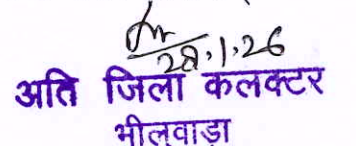 28.1.26
अति जिला कलक्टर
भीलवाड़ा